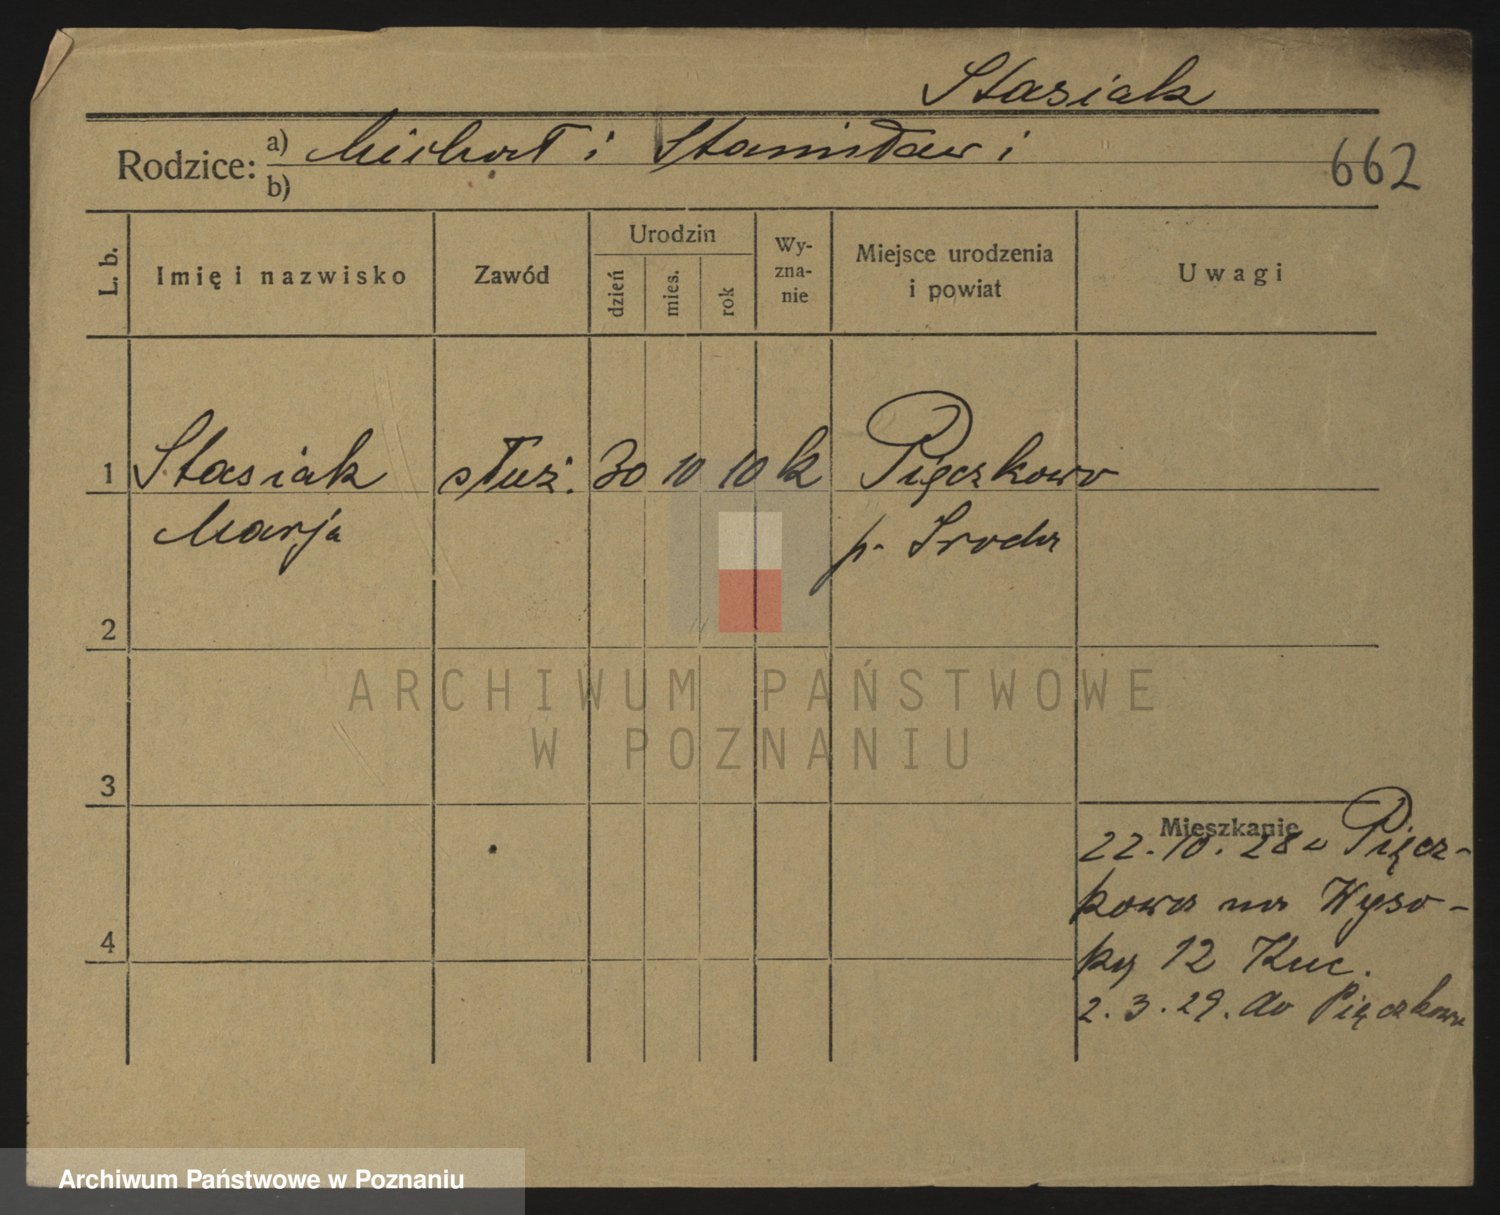 Stasiak
Rodzice: a) Michał i Stanisław i
b)
662
L. b.
Imię i nazwisko
Zawód
Urodzin
dzień
mies.
rok
Wy-
zna-
nie
Miejsce urodzenia
i powiat
Uwagi
1 Stasiak służ. 30 10 10 k Pięczkowo
Marja p. Sroda
2
3
Mieszkanie
22. 10. 28 Pięcz-
kowa na Wyso-
4
ky 12 Kuc.
2. 3. 29. do Pięczkowa
ARCHIWUM PAŃSTWOWE
W POZNANIU
Archiwum Państwowe w Poznaniu